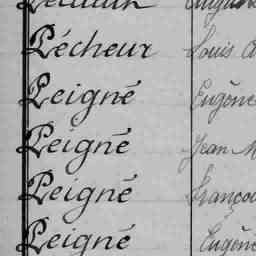 Pécheur Louis
Peigné Eugène
Peigné Jean M
Peigné Franço
Peigné Eugène